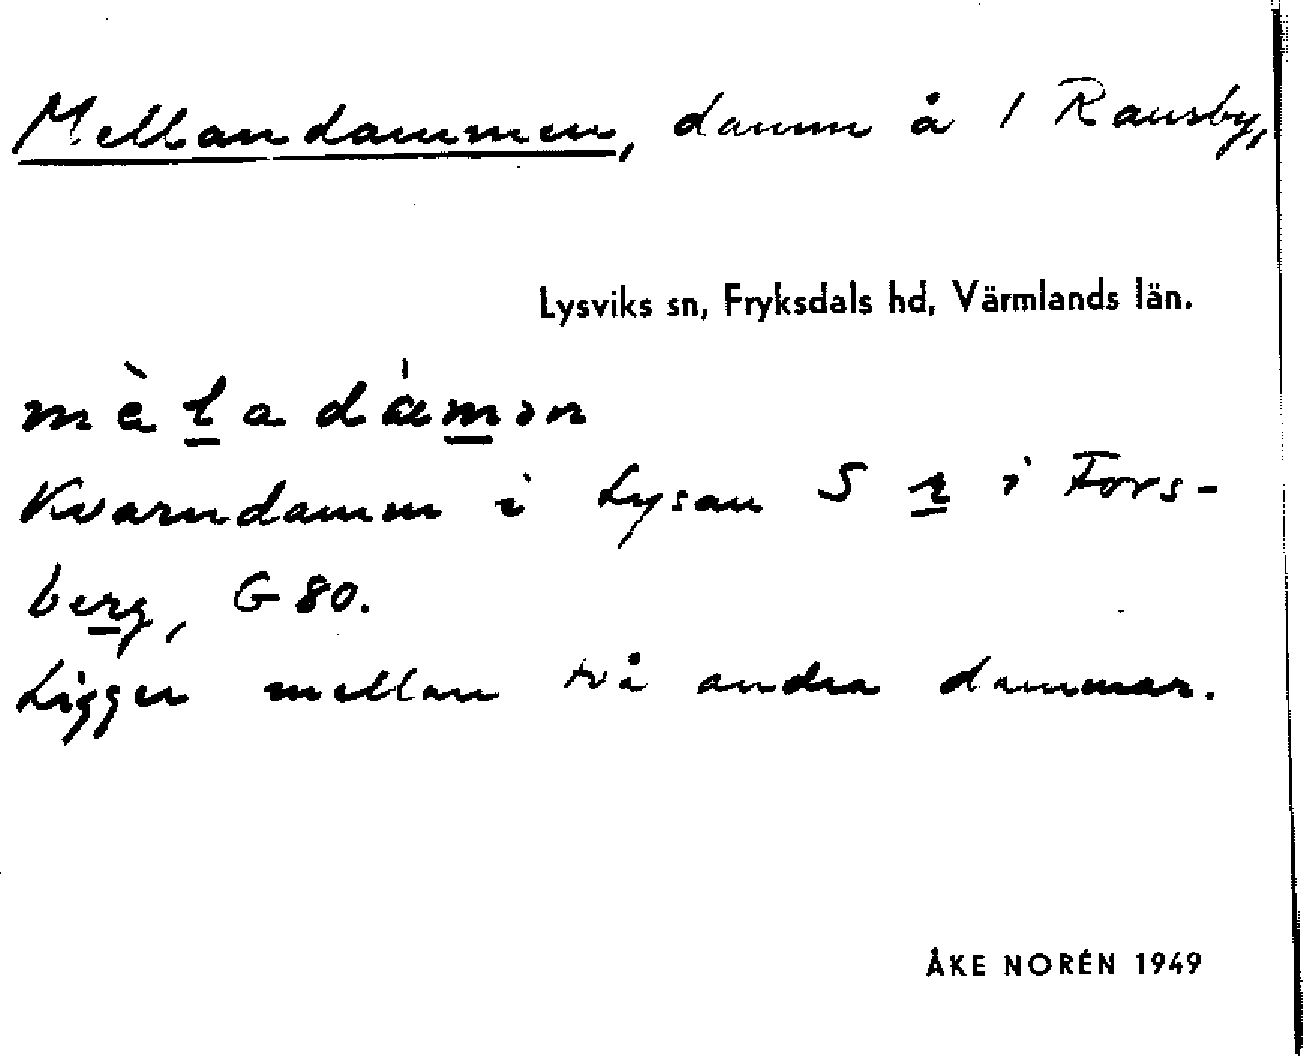 Mellandammen, damm å 1 Ransby,
Lysviks sn, Fryksdals hd, Värmlands län.
Kvarndamm i Lysan S r i Fors-
berg, G 80.
Ligger mellan två andra dammar.
ÅKE NORÉN 1949